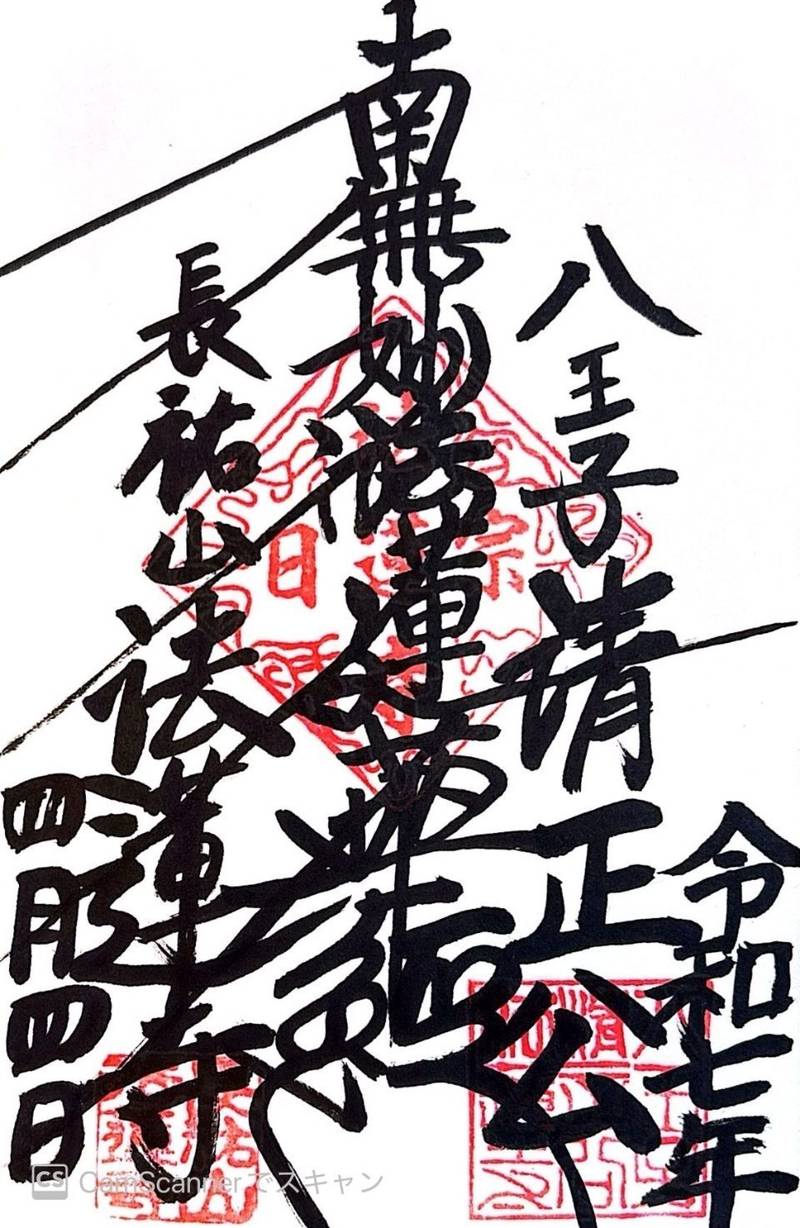 八王子清正公
令和七年
南無妙法蓮華経
長祐山法蓮寺
四月四日
日蓮宗
CS CamScannerでスキャン